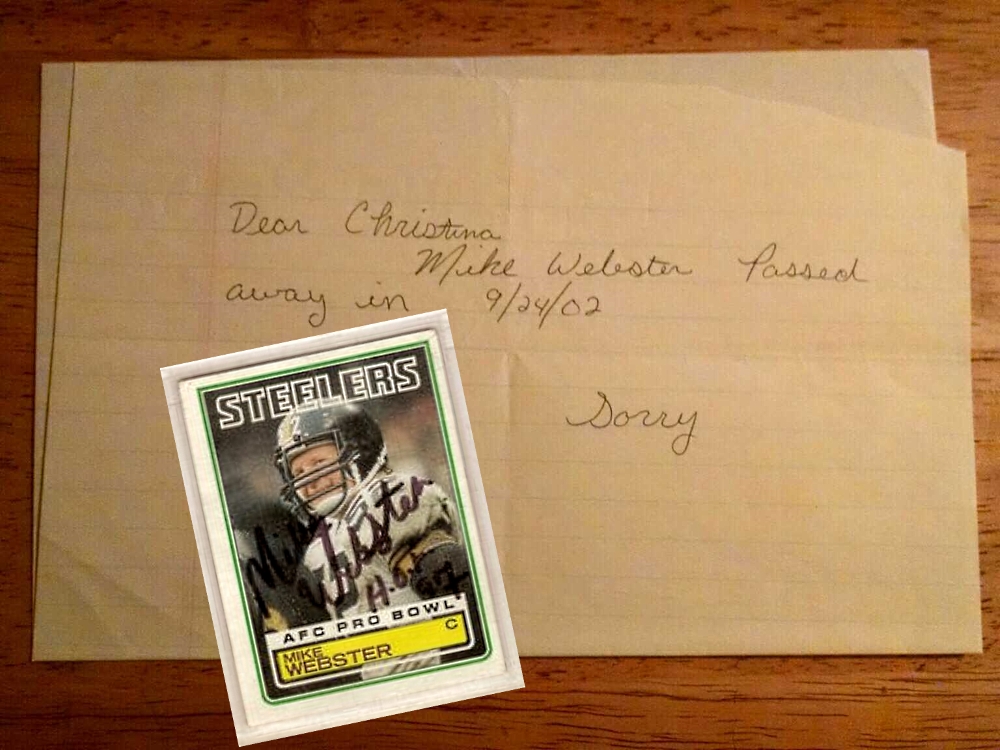 Dear Christina
Mike Webster Passed
away in 9/24/02
Sorry
STEELERS
Mike
Webster
H.O.F
AFC PRO BOWL
C
MIKE
WEBSTER